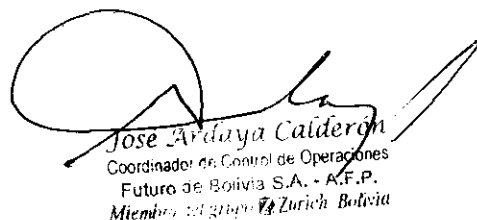 José Ardaya Calderón
Coordinador de Control de Operaciones
Futuro de Bolivia S.A. - A.F.P.
Miembro del grupo Zurich Bolivia